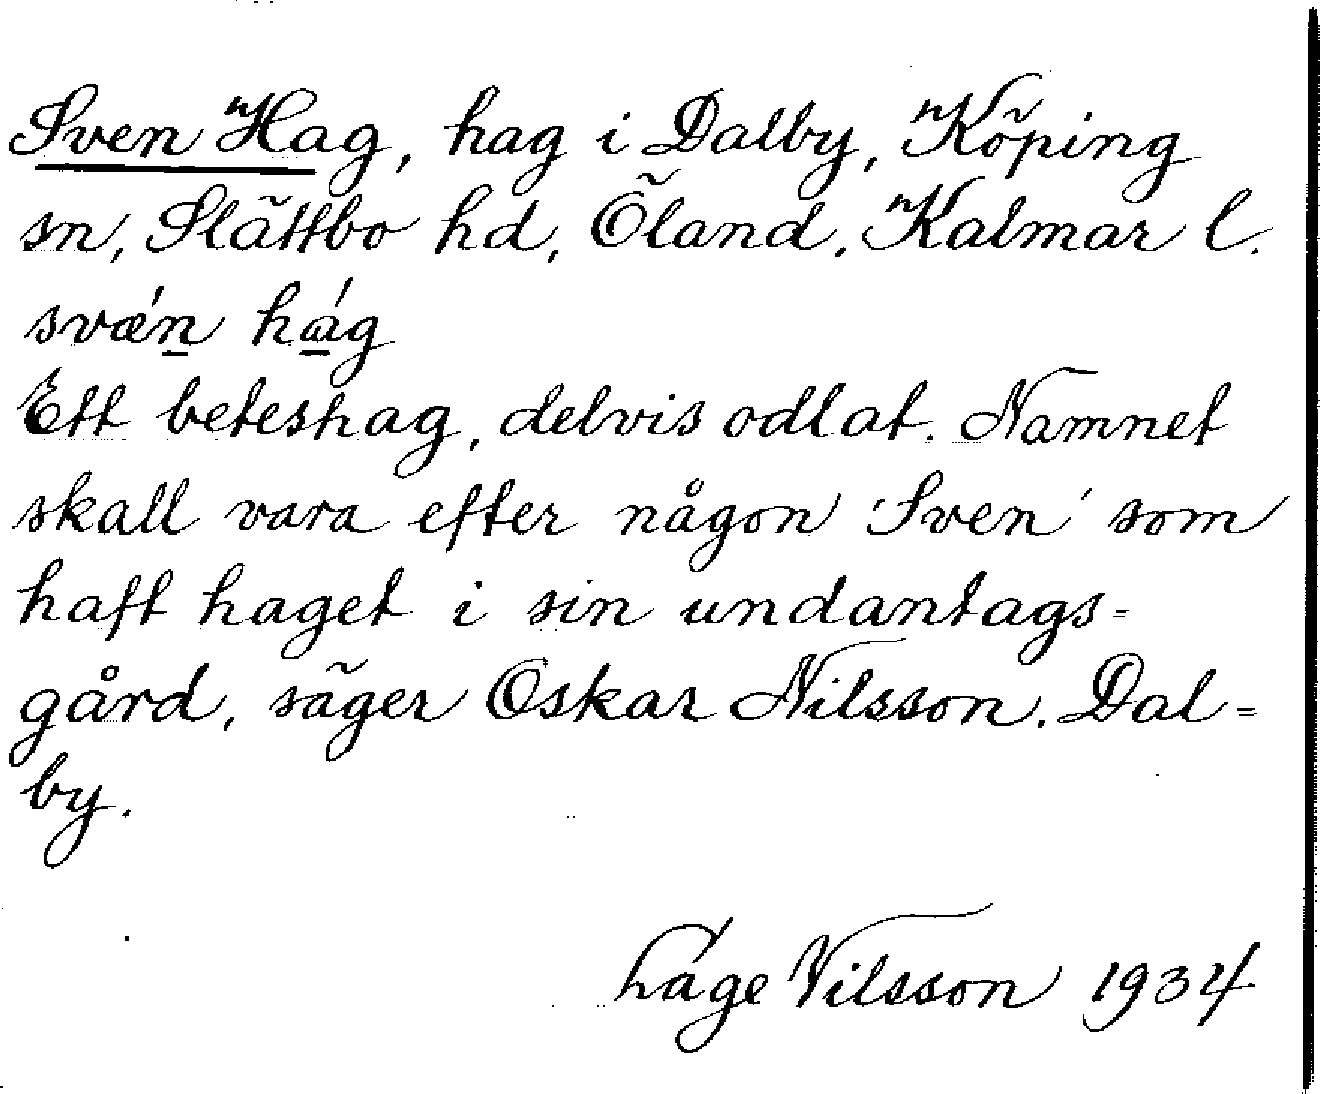 Sven Hag, hag i Dalby, Köping
sn, Slättbo hd, Öland, Kalmar l.
svǽn hág
Ett beteshag, delvis odlat. Namnet
skall vara efter någon 'Sven' som
haft haget i sin undantags=
gård, säger Oskar Nilsson. Dal=
by.
Lage Nilsson 1934